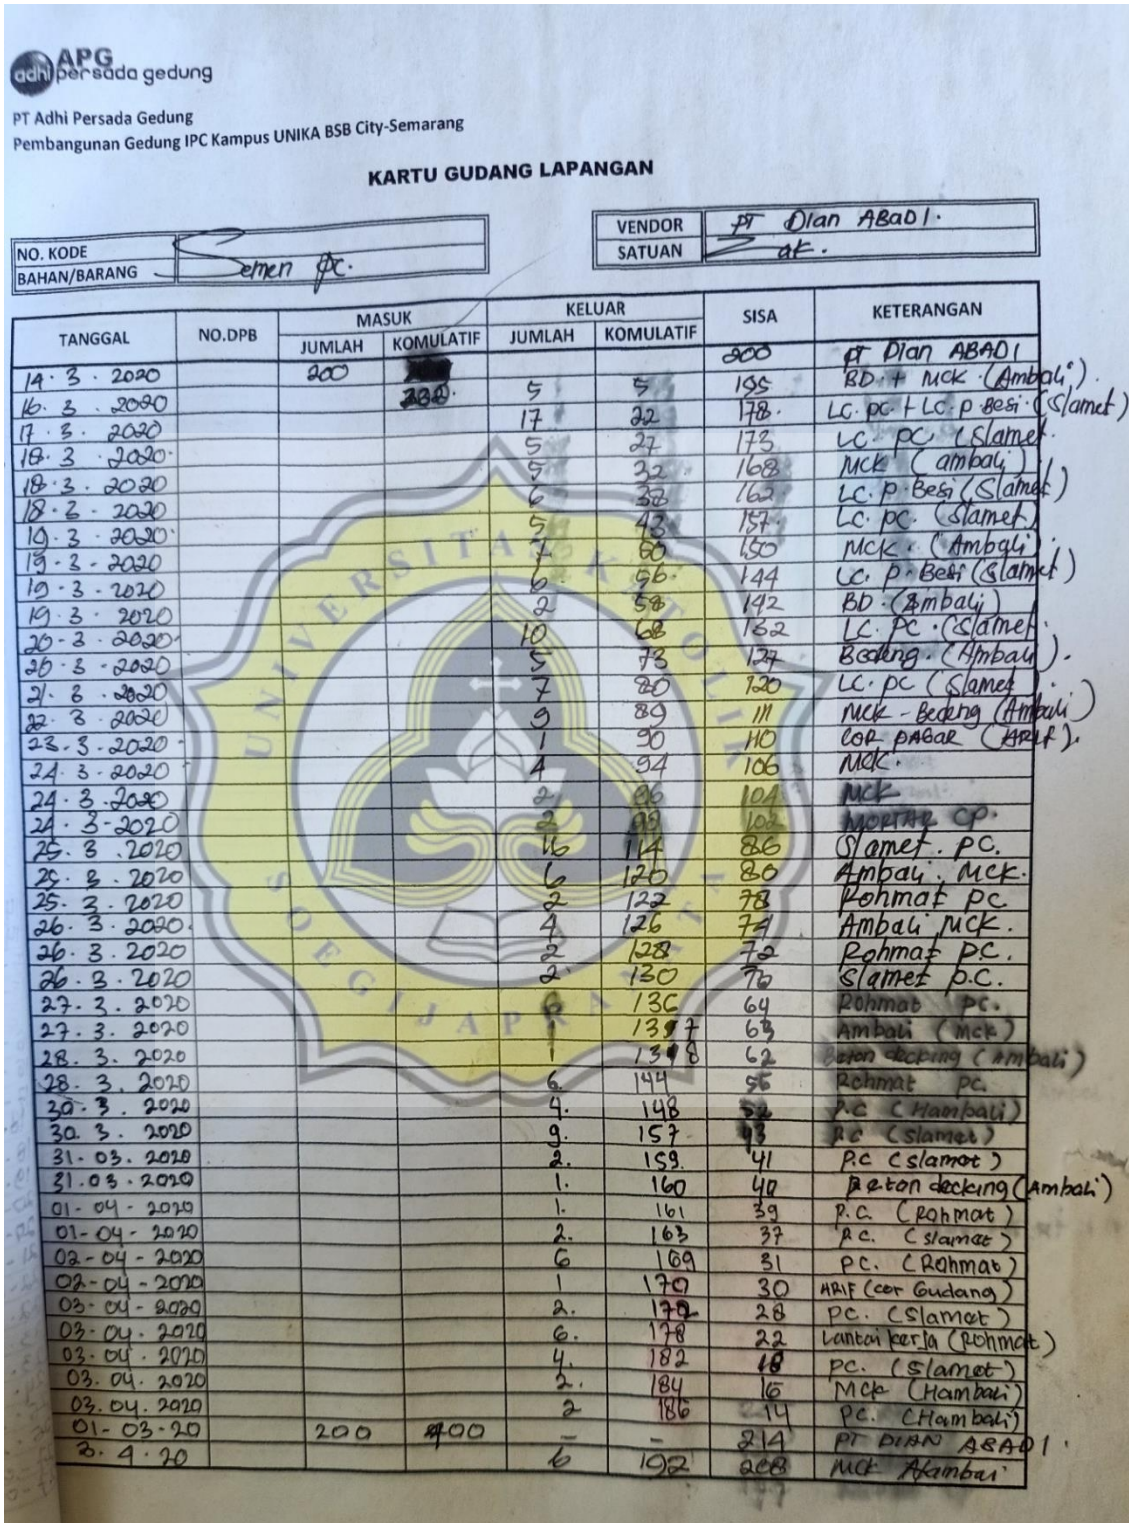 APG
adhi persada gedung
PT Adhi Persada Gedung
Pembangunan Gedung IPC Kampus UNIKA BSB City-Semarang
KARTU GUDANG LAPANGAN
NO. KODE
BAHAN/BARANG Semen pc.
VENDOR PT Dian ABADI.
SATUAN Zak.
TANGGAL NO.DPB MASUK KELUAR SISA KETERANGAN
JUMLAH KOMULATIF JUMLAH KOMULATIF
14.3.2020 200 200 PT Dian ABADI
16.3.2020 5 5 195 BD + MCK (Ambali).
17.3.2020 17 22 178. LC. pc. + LC. p. Besi (Slamet)
18.3.2020. 5 27 173 LC. pc. (Slamet.
18.3.2020 5 32 168 MCK (ambali)
18.3.2020 6 38 162 LC. p. Besi (Slamet)
19.3.2020. 5 43 157. LC. pc. (Slamet)
19.3-2020 7 50 150 MCK. (Ambali)
19.3.2020 6 56. 144 LC. p. Besi (Slamet)
19.3.2020 2 58 142 BD. (Ambali)
20-3.2020. 10 68 132 LC. PC. (Slamet.
20.3-2020 5 73 127 Bedeng. (Ambali).
21.3.2020 7 80 120 LC. pc (Slamet)
22.3.2020 9 89 111 MCK - Bedeng (Ambali)
23.3.2020 1 90 110 COR PAGAR (ARIF).
24.3.2020 4 94 106 MCK.
24.3.2020 2 96 104 MCK
24.3-2020 2 98 102 MORTAR CP.
25.3.2020 16 114 86 Slamet. PC.
25.3.2020 6 120 80 Ambali. MCK.
25.3.2020 2 122 78 Rohmat PC
26.3.2020. 4 126 74 Ambali MCK.
26.3.2020 2 128 72 Rohmat P.C.
26.3.2020 2 130 70 Slamet P.C.
27.3.2020 6 136 64 Rohmat PC.
27.3.2020 1 137 63 Ambali (MCK)
28.3.2020 1 138 62 Beton decking (Ambali)
28.3.2020 6. 144 56 Rohmat PC.
30.3.2020 4. 148 52 P.C (Hambali)
30.3.2020 9. 157 43 P.C (Slamet)
31.03.2020 2. 159. 41 P.C (Slamet)
31.03.2020 1. 160 40 Beton decking (Ambali)
01-04-2020 1. 161 39 P.C. (Rohmat)
01-04-2020 2. 163 37 P.C. (Slamet)
02-04-2020 6 169 31 PC. (Rohmat)
02-04-2020 1 170 30 ARIF (cor Gudang)
03-04-2020 2. 172 28 PC. (Slamet)
03-04.2020 6. 178 22 Lantai kerja (Rohmat)
03.04.2020 4. 182 18 PC. (Slamet)
03.04.2020 2. 184 16 MCK (Hambali)
03.04.2020 2 186 14 PC. (Hambali)
01-03-20 200 400 - - 214 PT DIAN ABADI.
3.4.20 6 192 208 MCK
UNIVERSITAS KATOLIK
SOEGIJAPRANATA